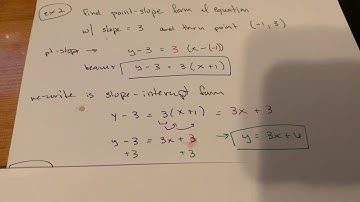 ex 2 Find point-slope form of equation
w/ slope = 3 and thru point (-1, 3)
pt-slope → y - 3 = 3 (x - (-1))
y - 3 = 3 (x + 1)
re-write is slope-intercept form
y - 3 = 3(x + 1) = 3x + 3
y - 3 = 3x + 3 → y = 3x + 6
+3 +3